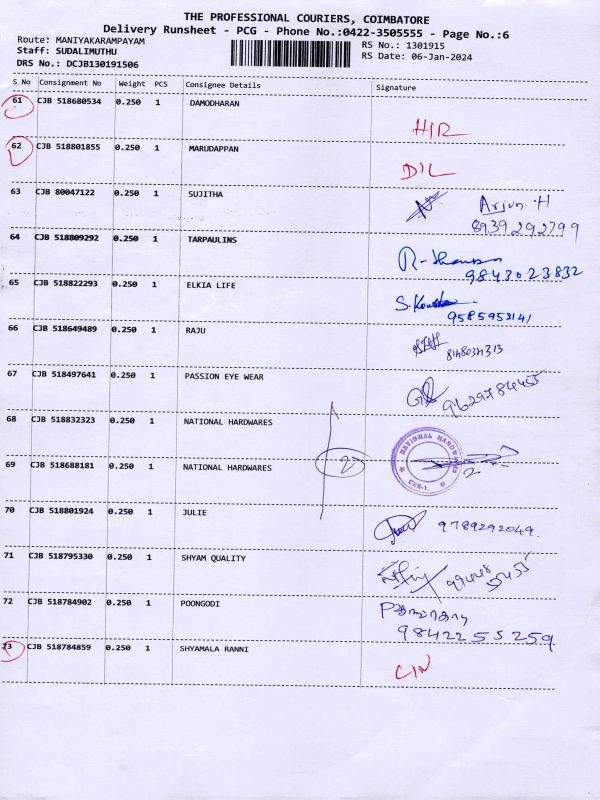 THE PROFESSIONAL COURIERS, COIMBATORE
Delivery Runsheet - PCG - Phone No.:0422-3505555 - Page No.:6
Route: MANIYAKARAMPAYAM RS No.: 1301915
Staff: SUDALIMUTHU RS Date: 06-Jan-2024
DRS No.: DCJB130191506
S No Consignment No Weight PCS Consignee Details Signature
61 CJB 518680534 0.250 1 DAMODHARAN
HIR
62 CJB 518801855 0.250 1 MARUDAPPAN
DIL
63 CJB 80047122 0.250 1 SUJITHA
Arjun.H
8939292799
64 CJB 518809292 0.250 1 TARPAULINS
9843023832
65 CJB 518822293 0.250 1 ELKIA LIFE
66 CJB 518649489 0.250 1 RAJU
67 CJB 518497641 0.250 1 PASSION EYE WEAR
9629784455
68 CJB 518832323 0.250 1 NATIONAL HARDWARES
2
NATIONAL HARDWARES
69 CJB 518688181 0.250 1 NATIONAL HARDWARES
2
CBE-1.
70 CJB 518801924 0.250 1 JULIE
9789292049.
71 CJB 518795330 0.250 1 SHYAM QUALITY
72 CJB 518784902 0.250 1 POONGODI
9842255259
73 CJB 518784859 0.250 1 SHYAMALA RANNI
CIN